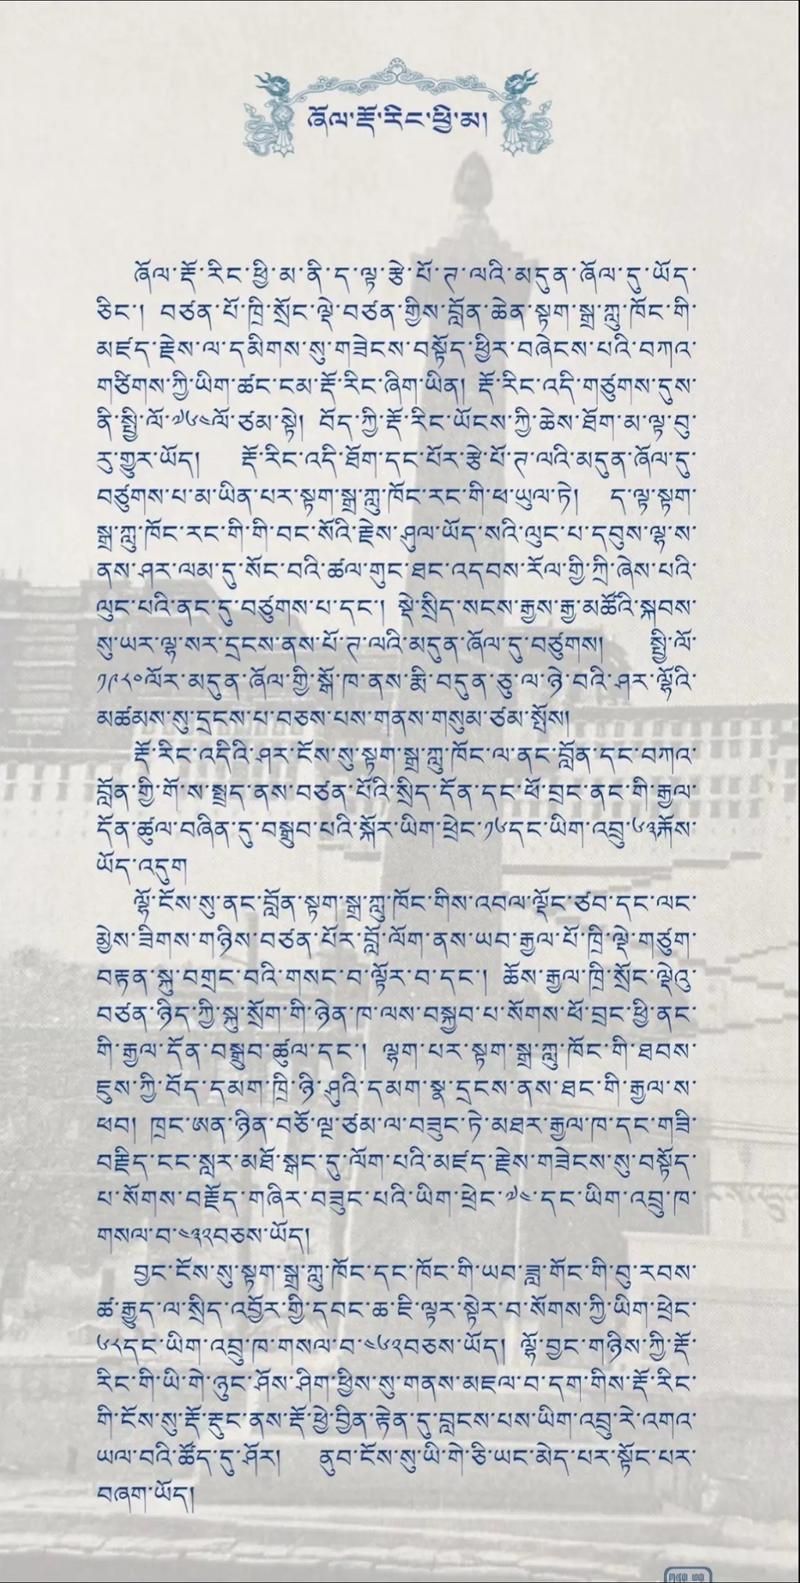 ཞོལ་རྡོ་རིང་ཕྱི་མ།
ཞོལ་རྡོ་རིང་ཕྱི་མ་ནི་ད་ལྟ་རྩེ་པོ་ཊ་ལའི་མདུན་ཞོལ་དུ་ཡོད་
ཅིང་། བཙན་པོ་ཁྲི་སྲོང་ལྡེ་བཙན་གྱིས་བློན་ཆེན་སྟག་སྒྲ་ཀླུ་ཁོང་གི་
མཛད་རྗེས་ལ་དམིགས་སུ་གཟེངས་བསྟོད་ཕྱིར་བཞེངས་པའི་བཀའ་
གཙིགས་ཀྱི་ཡིག་ཚང་ངམ་རྡོ་རིང་ཞིག་ཡིན། རྡོ་རིང་འདི་གཙུགས་དུས་
ནི་སྤྱི་ལོ་༧༦༤ལོ་ཙམ་སྟེ། བོད་ཀྱི་རྡོ་རིང་ཡོངས་ཀྱི་ཆེས་ཐོག་མ་ལྟ་བུ་
རུ་གྱུར་ཡོད། རྡོ་རིང་འདི་ཐོག་དང་པོར་རྩེ་པོ་ཊ་ལའི་མདུན་ཞོལ་དུ་
བཙུགས་པ་མ་ཡིན་པར་སྟག་སྒྲ་ཀླུ་ཁོང་རང་གི་ཕ་ཡུལ་ཏེ། ད་ལྟ་སྟག་
སྒྲ་ཀླུ་ཁོང་རང་གི་གི་བང་སོའི་རྗེས་ཤུལ་ཡོད་སའི་ལུང་པ་དབུས་ལྷ་ས་
ནས་ཤར་ལམ་དུ་སོང་བའི་ཚལ་གུང་ཐང་འདབས་རོལ་གྱི་ཀྲི་ཞེས་པའི་
ལུང་པའི་ནང་དུ་བཙུགས་པ་དང་། སྡེ་སྲིད་སངས་རྒྱས་རྒྱ་མཚོའི་སྐབས་
སུ་ཡར་ལྷ་སར་དྲངས་ནས་པོ་ཊ་ལའི་མདུན་ཞོལ་དུ་བཙུགས། སྤྱི་ལོ་
༡༩༨༠ལོར་མདུན་ཞོལ་གྱི་སྒོ་ཁ་ནས་རྨི་བདུན་ཅུ་ལ་ཉེ་བའི་ཤར་ལྷོའི་
མཚམས་སུ་དྲངས་པ་བཅས་པས་གནས་གསུམ་ཙམ་སྤོས།
རྡོ་རིང་འདིའི་ཤར་ངོས་སུ་སྟག་སྒྲ་ཀླུ་ཁོང་ལ་ནང་བློན་དང་བཀའ་
བློན་གྱི་གོ་ས་སྤྲད་ནས་བཙན་པོའི་སྲིད་དོན་དང་ཕོ་བྲང་ནང་གི་རྒྱལ་
དོན་ཚུལ་བཞིན་དུ་བསྒྲུབ་པའི་སྐོར་ཡིག་ཕྲེང་༡༦དང་ཡིག་འབྲུ་༦༣རྐོས་
ཡོད་འདུག
ལྷོ་ངོས་སུ་ནང་བློན་སྟག་སྒྲ་ཀླུ་ཁོང་གིས་འབལ་ལྡོང་ཙབ་དང་ལང་
མྱེས་ཟིགས་གཉིས་བཙན་པོར་བློ་ལོག་ནས་ཡབ་རྒྱལ་པོ་ཁྲི་ལྡེ་གཙུག་
བརྟན་སྐུ་བགྲང་བའི་གསང་བ་ལྟོར་བ་དང་། ཆོས་རྒྱལ་ཁྲི་སྲོང་ལྡེའུ་
བཙན་ཉིད་ཀྱི་སྐུ་སྲོག་གི་ཉེན་ཁ་ལས་བསྐྱབ་པ་སོགས་ཕོ་བྲང་ཕྱི་ནང་
གི་རྒྱལ་དོན་བསྒྲུབ་ཚུལ་དང་། ལྷག་པར་སྟག་སྒྲ་ཀླུ་ཁོང་གི་ཐབས་
ཇུས་ཀྱི་བོད་དམག་ཁྲི་ཉི་ཤུའི་དམག་སྣ་དྲངས་ནས་ཐང་གི་རྒྱལ་ས་
ཕབ། ཁྲང་ཨན་ཉིན་བཅོ་ལྔ་ཙམ་ལ་བཟུང་ཏེ་མཐར་རྒྱལ་ཁ་དང་གཟི་
བརྗིད་ངང་སླར་མཐོ་སྒང་དུ་ལོག་པའི་མཛད་རྗེས་གཟེངས་སུ་བསྟོད་
པ་སོགས་བརྗོད་གཞིར་བཟུང་པའི་ཡིག་ཕྲེང་༧༤་དང་ཡིག་འབྲུ་ཁ་
གསལ་བ་༤༣༢བཅས་ཡོད།
བྱང་ངོས་སུ་སྟག་སྒྲ་ཀླུ་ཁོང་དང་ཁོང་གི་ཡབ་ཟླ་གོང་གི་བུ་རབས་
ཚ་རྒྱུད་ལ་སྲིད་འབྱོར་གྱི་དབང་ཆ་ཇི་ལྟར་སྟེར་བ་སོགས་ཀྱི་ཡིག་ཕྲེང་
༦༨དང་ཡིག་འབྲུ་ཁ་གསལ་བ་༤༦༢བཅས་ཡོད། ལྷོ་བྱང་གཉིས་ཀྱི་རྡོ་
རིང་གི་ཡི་གེ་ཉུང་ཤོས་ཤིག་ཕྱིས་སུ་གནས་མཇལ་བ་དག་གིས་རྡོ་རིང་
གི་ངོས་སུ་རྡོ་རྡུང་ནས་རྡོ་ཕྱེ་བྱིན་རྟེན་དུ་བླངས་པས་ཡིག་འབྲུ་རེ་འགའ་
ཡལ་བའི་ཚོད་དུ་ཤོར། ནུབ་ངོས་སུ་ཡི་གེ་ཅི་ཡང་མེད་པར་སྟོང་པར་
བཞག་ཡོད།